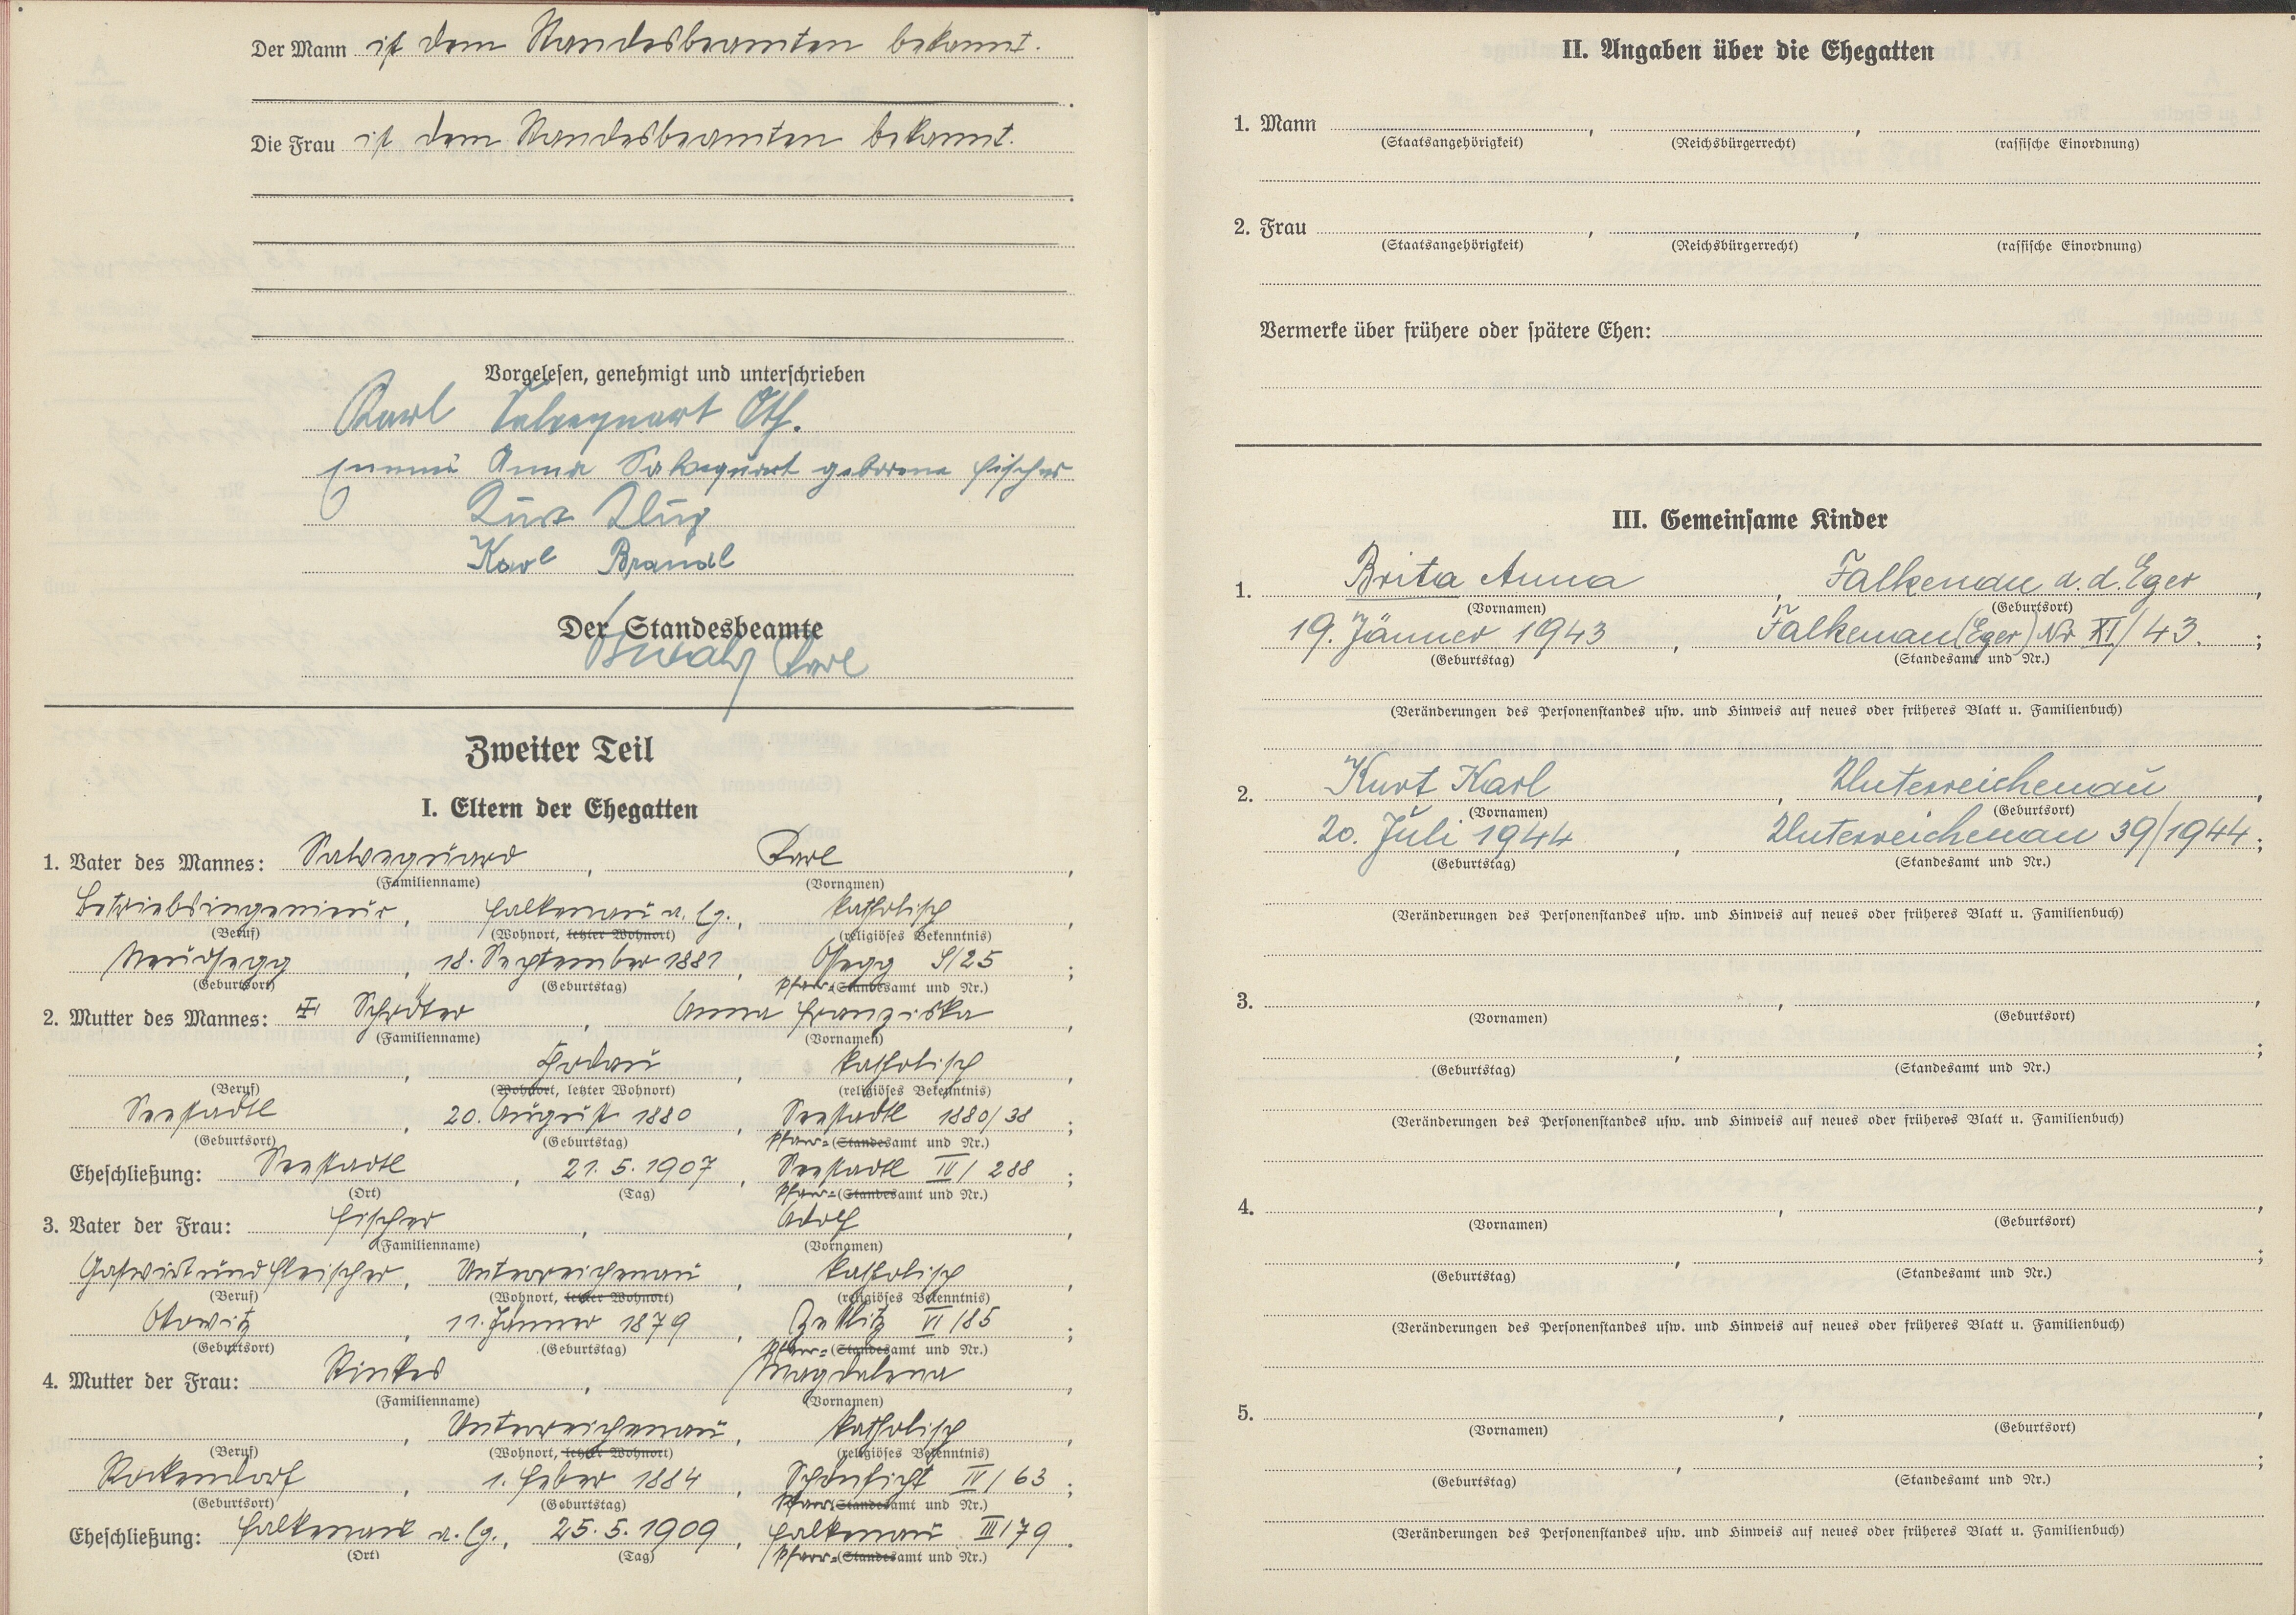 Der Mann ist dem Standesbeamten bekannt.
Die Frau ist dem Standesbeamten bekannt.
Vorgelesen, genehmigt und unterschrieben
Karl
Emmi Anna Salvequart geborene Fischer
Kurt
Karl Brandl
Der Standesbeamte
Karl
Zweiter Teil
I. Eltern der Ehegatten
1. Vater des Mannes: Salveguard, Karl,
(Familienname) (Vornamen)
Betriebsingenieur, Falkenau a. Eg., katholisch,
(Beruf) (Wohnort, letzter Wohnort) (religiöses Bekenntnis)
Neuossegg, 18. September 1881, Ossegg S/25;
(Geburtsort) (Geburtstag) Pfarr-(Standesamt und Nr.)
2. Mutter des Mannes: Schröter, Anna Franziska,
(Familienname) (Vornamen)
, Zodau, katholisch,
(Beruf) (Wohnort, letzter Wohnort) (religiöses Bekenntnis)
Seestadtl, 20. August 1880, Seestadtl 1880/38;
(Geburtsort) (Geburtstag) Pfarr-(Standesamt und Nr.)
Eheschließung: Seestadtl, 21. 5. 1907, Seestadtl IV/288;
(Ort) (Tag) Pfarr-(Standesamt und Nr.)
3. Vater der Frau: Fischer, Adolf,
(Familienname) (Vornamen)
Gastwirt und Fleischer, Unterreichenau, katholisch,
(Beruf) (Wohnort, letzter Wohnort) (religiöses Bekenntnis)
Otowitz, 11. Jänner 1879, Zettlitz VI/85;
(Geburtsort) (Geburtstag) Pfarr-(Standesamt und Nr.)
4. Mutter der Frau: Magdalena,
(Familienname) (Vornamen)
, Unterreichenau, katholisch,
(Beruf) (Wohnort, letzter Wohnort) (religiöses Bekenntnis)
Rockendorf, 1. Feber 1884, Schönficht IV/63;
(Geburtsort) (Geburtstag) Pfarr-(Standesamt und Nr.)
Eheschließung: Falkenau a. Eg., 25. 5. 1909, Falkenau III/79.
(Ort) (Tag) Pfarr-(Standesamt und Nr.)
II. Angaben über die Ehegatten
1. Mann , ,
(Staatsangehörigkeit) (Reichsbürgerrecht) (rassische Einordnung)
2. Frau , ,
(Staatsangehörigkeit) (Reichsbürgerrecht) (rassische Einordnung)
Vermerke über frühere oder spätere Ehen:
III. Gemeinsame Kinder
1. Brita Anna, Falkenau a. d. Eger,
(Vornamen) (Geburtsort)
19. Jänner 1943, Falkenau (Eger) Nr XI/43.;
(Geburtstag) (Standesamt und Nr.)
(Veränderungen des Personenstandes usw. und Hinweis auf neues oder früheres Blatt u. Familienbuch)
2. Kurt Karl, Unterreichenau,
(Vornamen) (Geburtsort)
20. Juli 1944, Unterreichenau 39/1944;
(Geburtstag) (Standesamt und Nr.)
(Veränderungen des Personenstandes usw. und Hinweis auf neues oder früheres Blatt u. Familienbuch)
3. , ,
(Vornamen) (Geburtsort)
, ;
(Geburtstag) (Standesamt und Nr.)
(Veränderungen des Personenstandes usw. und Hinweis auf neues oder früheres Blatt u. Familienbuch)
4. , ,
(Vornamen) (Geburtsort)
, ;
(Geburtstag) (Standesamt und Nr.)
(Veränderungen des Personenstandes usw. und Hinweis auf neues oder früheres Blatt u. Familienbuch)
5. , ,
(Vornamen) (Geburtsort)
, ;
(Geburtstag) (Standesamt und Nr.)
(Veränderungen des Personenstandes usw. und Hinweis auf neues oder früheres Blatt u. Familienbuch)